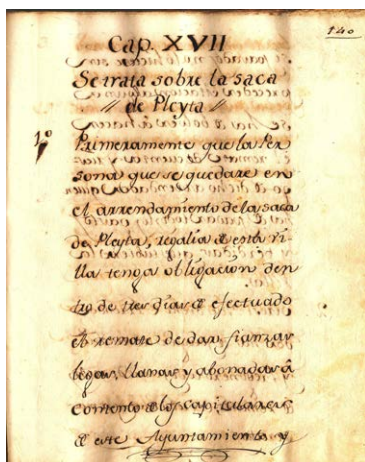 140
Cap. XVII
Se trata sobre la saca
de Pleyta
1º
Primeramente que la Per
sona que se quedare en
el arrendamiento de la saca
de Pleyta, regalia de esta vi
lla tenga obligacion den
tro de tres dias de efectuado
el remate de dar fianzas
legas, llanas y abonadas â
contento de los Capitulares
de este Ayuntamiento y